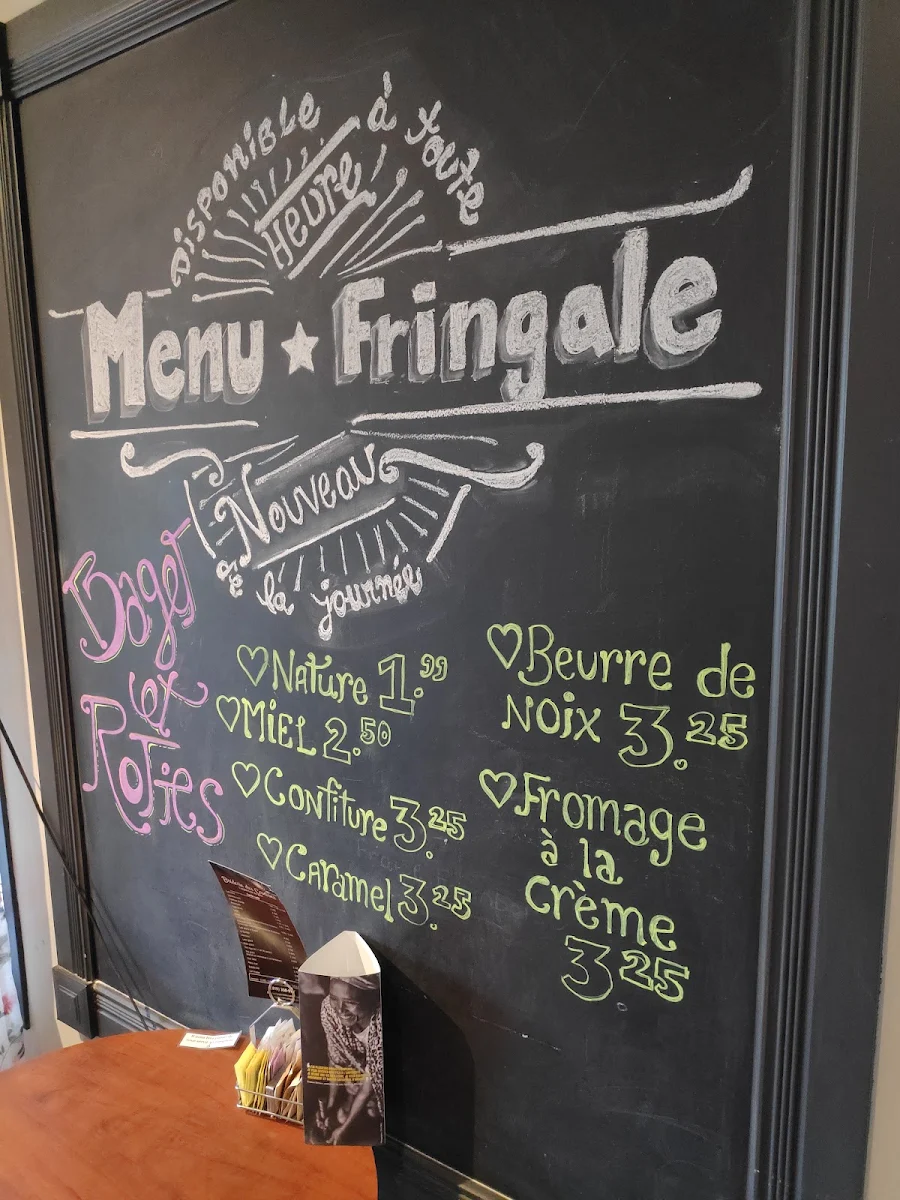 DISPONIBLE à toute
Heure
Menu ★ Fringale
Nouveau
de la journée
Bagel
et
Roties
♡Nature 1.99
♡MIEL 2.50
♡Confiture 3.25
♡Caramel 3.25
♡Beurre de
NOix 3.25
♡Fromage
à la
Crème
3.25